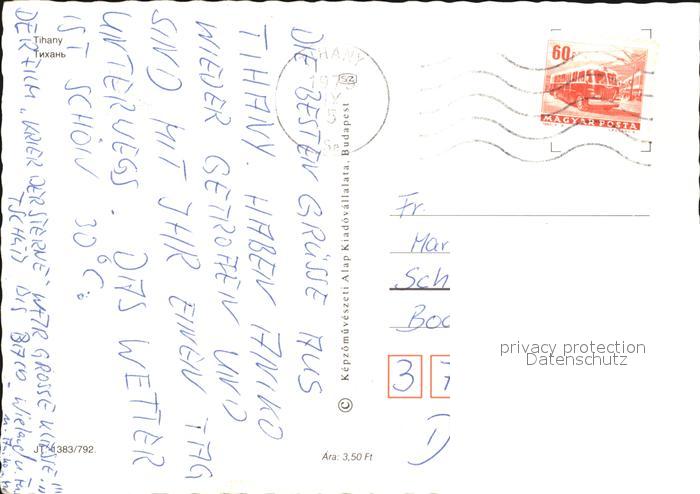 Tihany
Тихань
DIE BESTEN GRÜSSE AUS
TIHANY. HABEN ANIKO
WIEDER GETROFFEN UND
SIND MIT IHR EINEN TAG
UNTERWEGS. DAS WETTER
IST SCHÖN 30°C.
DER FILM „KRIEG DER STERNE“ WAR GROSSE KLASSE!!!
TSCHÜSS BIS
JT. 1383/792.
Képzőművészeti Alap Kiadóvállalata, Budapest
Ára: 3,50 Ft
TIHANY
60f
MAGYAR POSTA
Fr.
Mar
Sch
Boc
3 7
D
privacy protection
Datenschutz